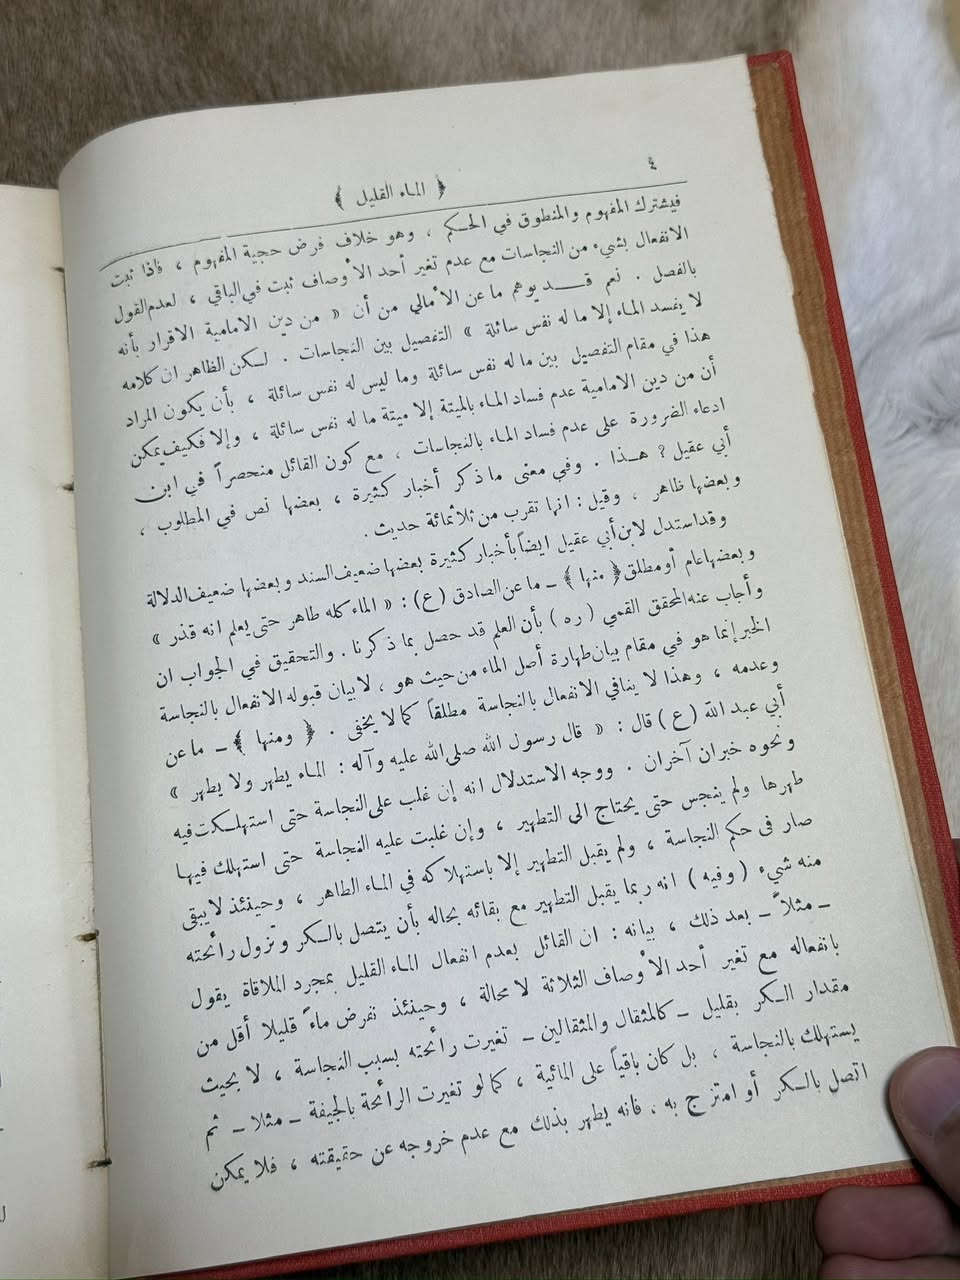 ٤
﴿ الماء القليل ﴾
فيشترك المفهوم والمنطوق في الحكم ، وهو خلاف فرض حجية المفهوم ، فاذا ثبت
الانفعال بشيء من النجاسات مع عدم تغير أحد الأوصاف ثبت في الباقي ، لعدم القول
بالفصل . نعم قد يوهم ما عن الأمالي من أن « من دين الامامية الاقرار بأنه
لا يفسد الماء إلا ما له نفس سائلة » التفصيل بين النجاسات . لكن الظاهر ان كلامه
هذا في مقام التفصيل بين ما له نفس سائلة وما ليس له نفس سائلة ، بأن يكون المراد
أن من دين الامامية عدم فساد الماء بالميتة إلا ميتة ما له نفس سائلة ، وإلا فكيف يمكن
ادعاء الضرورة على عدم فساد الماء بالنجاسات ، مع كون القائل منحصراً في ابن
أبي عقيل ? هذا . وفي معنى ما ذكر أخبار كثيرة ، بعضها نص في المطلوب ،
وبعضها ظاهر ، وقيل : انها تقرب من ثلاثمائة حديث .
وقد استدل لابن أبي عقيل ايضاً بأخبار كثيرة بعضها ضعيف السند وبعضها ضعيف الدلالة
وبعضها عام أو مطلق ﴿ منها ﴾ ـ ما عن الصادق (ع) : « الماء كله طاهر حتى يعلم انه قذر »
وأجاب عنه المحقق القمي ( ره ) بأن العلم قد حصل بما ذكرنا . والتحقيق في الجواب ان
الخبر إنما هو في مقام بيان طهارة أصل الماء من حيث هو ، لا بيان قبوله الانفعال بالنجاسة
وعدمه ، وهذا لا ينافي الانفعال بالنجاسة مطلقاً كما لا يخفى . ﴿ ومنها ﴾ ـ ما عن
أبي عبد الله (ع) قال : « قال رسول الله صلى الله عليه وآله : الماء يطهر ولا يطهر »
ونحوه خبران آخران . ووجه الاستدلال انه إن غلب على النجاسة حتى استهلكت فيه
طهرها ولم ينجس حتى يحتاج الى التطهير ، وإن غلبت عليه النجاسة حتى استهلك فيها
صار في حكم النجاسة ، ولم يقبل التطهير إلا باستهلاكه في الماء الطاهر ، وحينئذ لا يبقى
منه شيء ( وفيه ) انه ربما يقبل التطهير مع بقائه بحاله بأن يتصل بالكر وتزول رائحته
ـ مثلاً ـ بعد ذلك ، بيانه : ان القائل بعدم انفعال الماء القليل بمجرد الملاقاة يقول
بانفعاله مع تغير أحد الأوصاف الثلاثة لا محالة ، وحينئذ نفرض ماءً قليلا أقل من
مقدار الكر بقليل ـ كالمثقال والمثقالين ـ تغيرت رائحته بسبب النجاسة ، لا بحيث
يستهلك بالنجاسة ، بل كان باقياً على المائية ، كما لو تغيرت الرائحة بالجيفة ـ مثلا ـ ثم
اتصل بالكر أو امتزج به ، فانه يطهر بذلك مع عدم خروجه عن حقيقته ، فلا يمكن